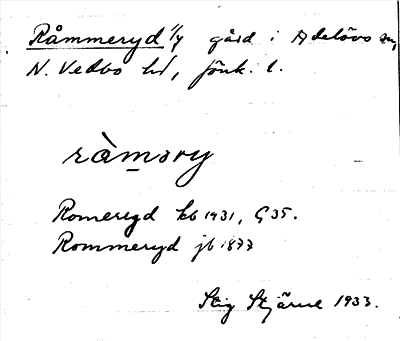 Råmmeryd 1/4 gård i Adelövs sn,
N. Vedbo hd, Jönk. l.
ràməry
Romeryd kb 1931, G 35.
Rommeryd jb 1877
Stig Stjärne 1933.